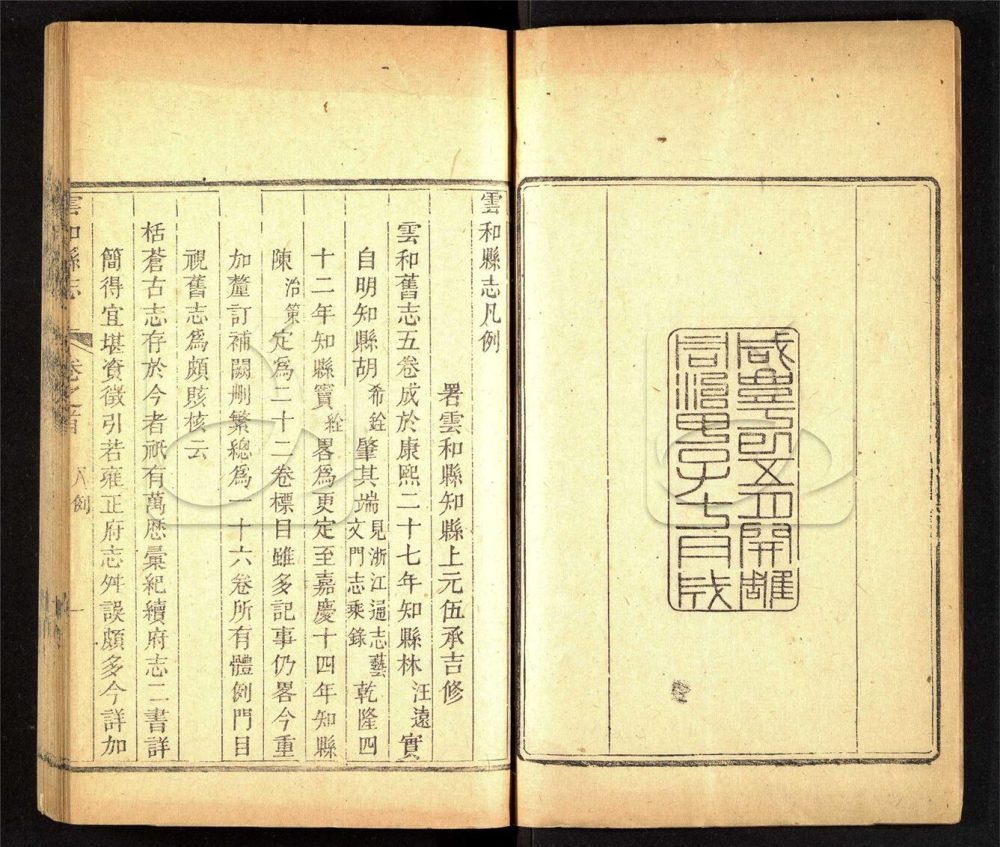 咸豐丁巳五月開雕
同治甲子七月成
雲和縣志凡例
署雲和縣知縣上元伍承吉修
雲和舊志五卷成於康熙二十七年知縣林汪遠實
自明知縣胡希銓肇其端見浙江通志藝文門志乘錄乾隆四
十二年知縣竇絟畧爲更定至嘉慶十四年知縣
陳治策定爲二十二卷標目雖多記事仍畧今重
加釐訂補闕刪繁總爲一十六卷所有體例門目
視舊志爲頗賅核云
栝蒼古志存於今者祇有萬歷彙紀續府志二書詳
簡得宜堪資徵引若雍正府志舛誤頗多今詳加
雲和縣志 卷之首 凡例 一